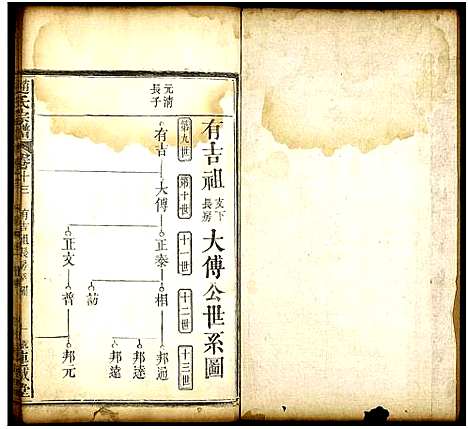 有吉祖支下長房大傅公世系圖
第九世
第十世
十一世
十二世
十三世
元清長子
有吉
大傅
正泰
相
邦通
邦逵
邦遠
正文
普
邦元
氏宗譜
有吉祖長房系圖